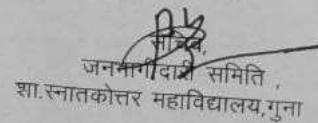 सचिव,
जनभागीदारी समिति,
शा.स्नातकोत्तर महाविद्यालय,गुना